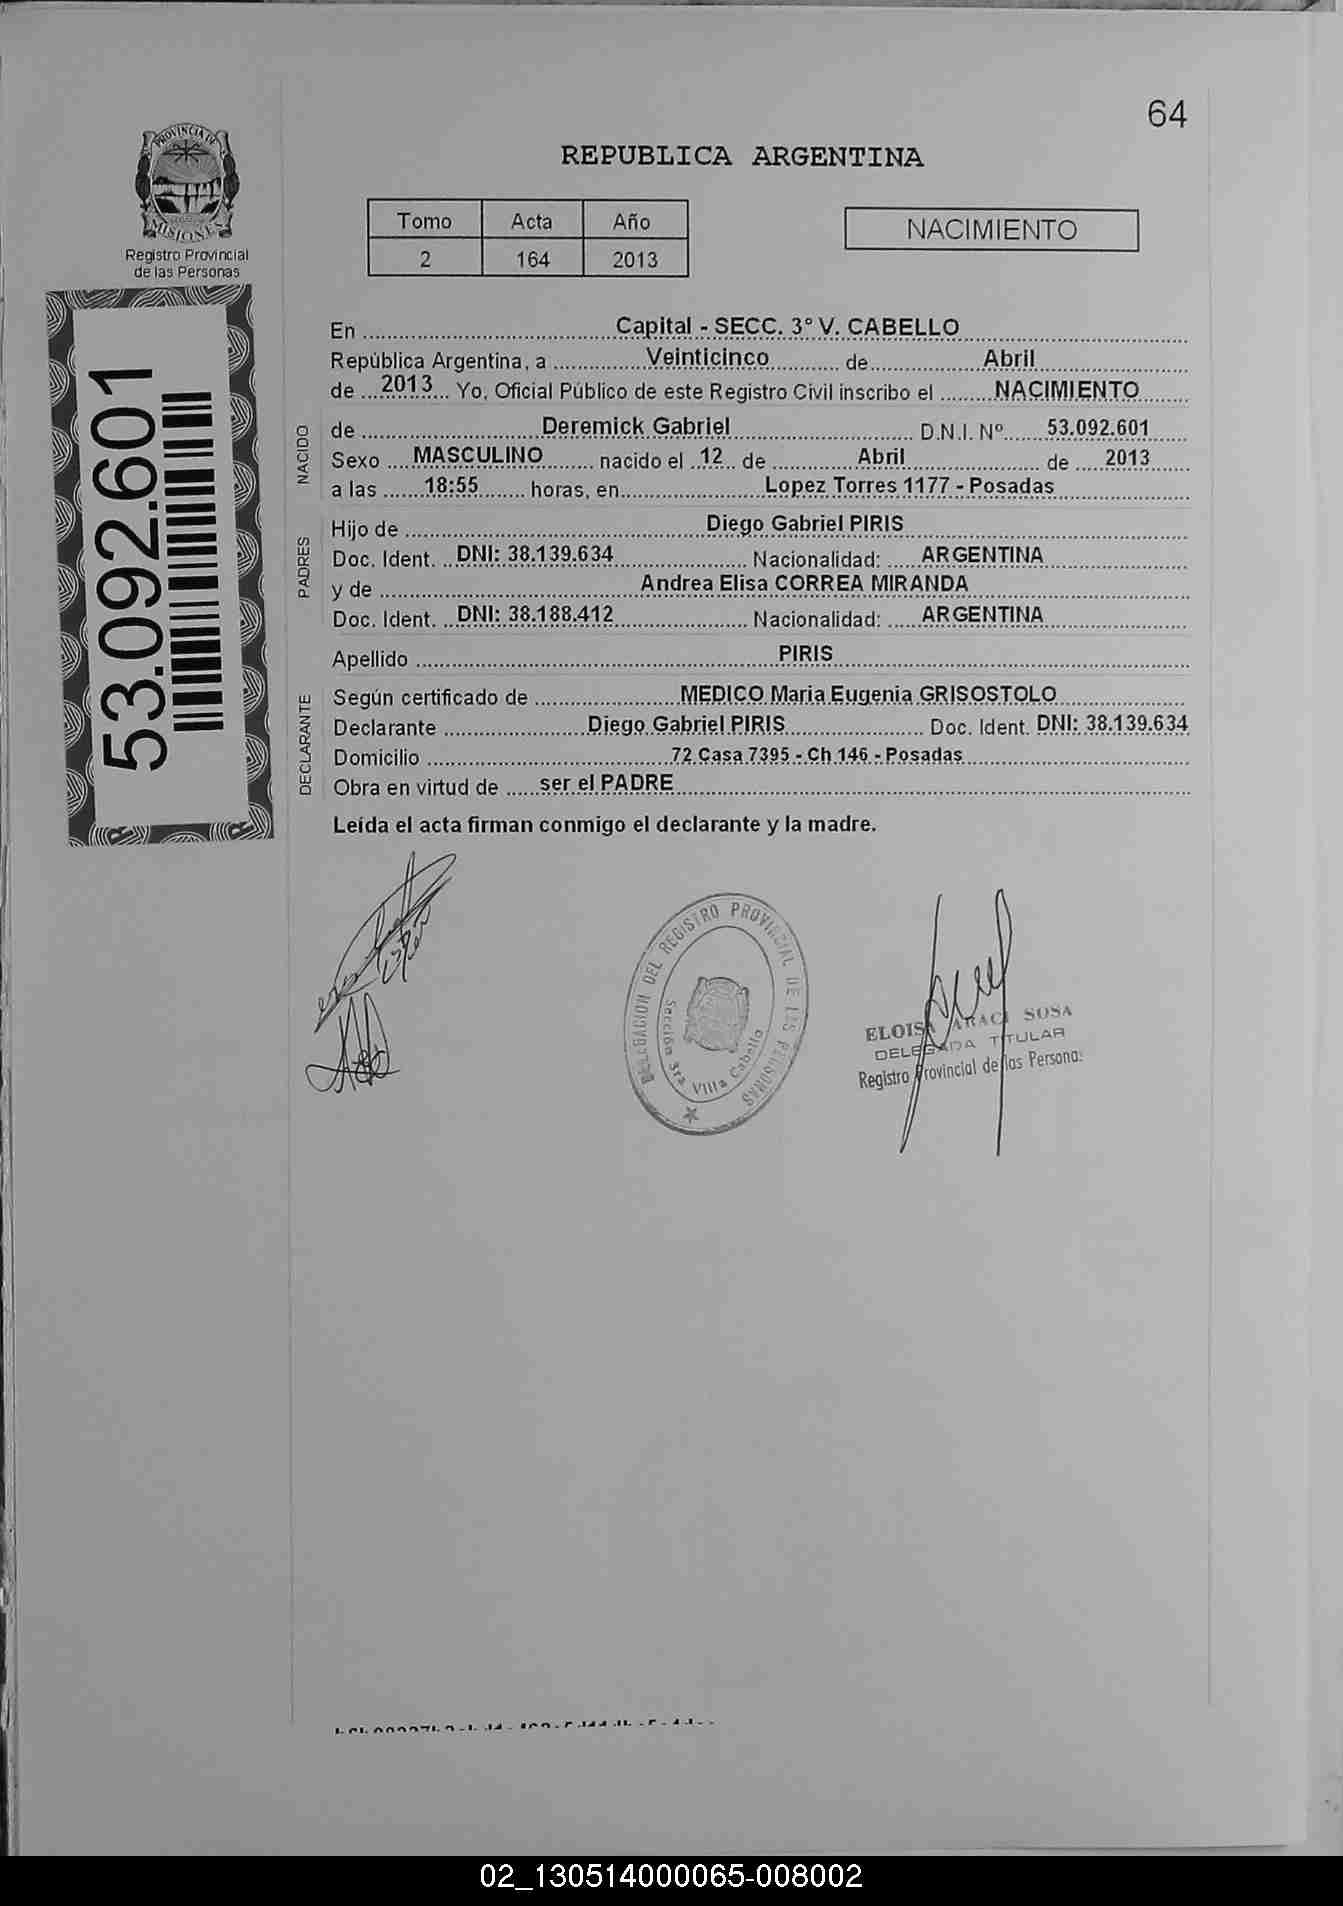 64
PROVINCIA DE
MISIONES
Registro Provincial
de las Personas
REPUBLICA ARGENTINA
Tomo Acta Año
2 164 2013
NACIMIENTO
53.092.601
En Capital - SECC. 3° V. CABELLO
República Argentina, a Veinticinco de Abril
de 2013 Yo, Oficial Público de este Registro Civil inscribo el NACIMIENTO
NACIDO
de Deremick Gabriel D.N.I. Nº 53.092.601
Sexo MASCULINO nacido el 12 de Abril de 2013
a las 18:55 horas, en Lopez Torres 1177 - Posadas
PADRES
Hijo de Diego Gabriel PIRIS
Doc. Ident. DNI: 38.139.634 Nacionalidad: ARGENTINA
y de Andrea Elisa CORREA MIRANDA
Doc. Ident. DNI: 38.188.412 Nacionalidad: ARGENTINA
Apellido PIRIS
DECLARANTE
Según certificado de MEDICO Maria Eugenia GRISOSTOLO
Declarante Diego Gabriel PIRIS Doc. Ident. DNI: 38.139.634
Domicilio 72 Casa 7395 - Ch 146 - Posadas
Obra en virtud de ser el PADRE
Leída el acta firman conmigo el declarante y la madre.
DELEGACION DEL REGISTRO PROVINCIAL DE LAS PERSONAS
Sección 3ra Villa Cabello
ELOISA ARACI SOSA
DELEGADA TITULAR
Registro Provincial de las Personas
02_130514000065-008002